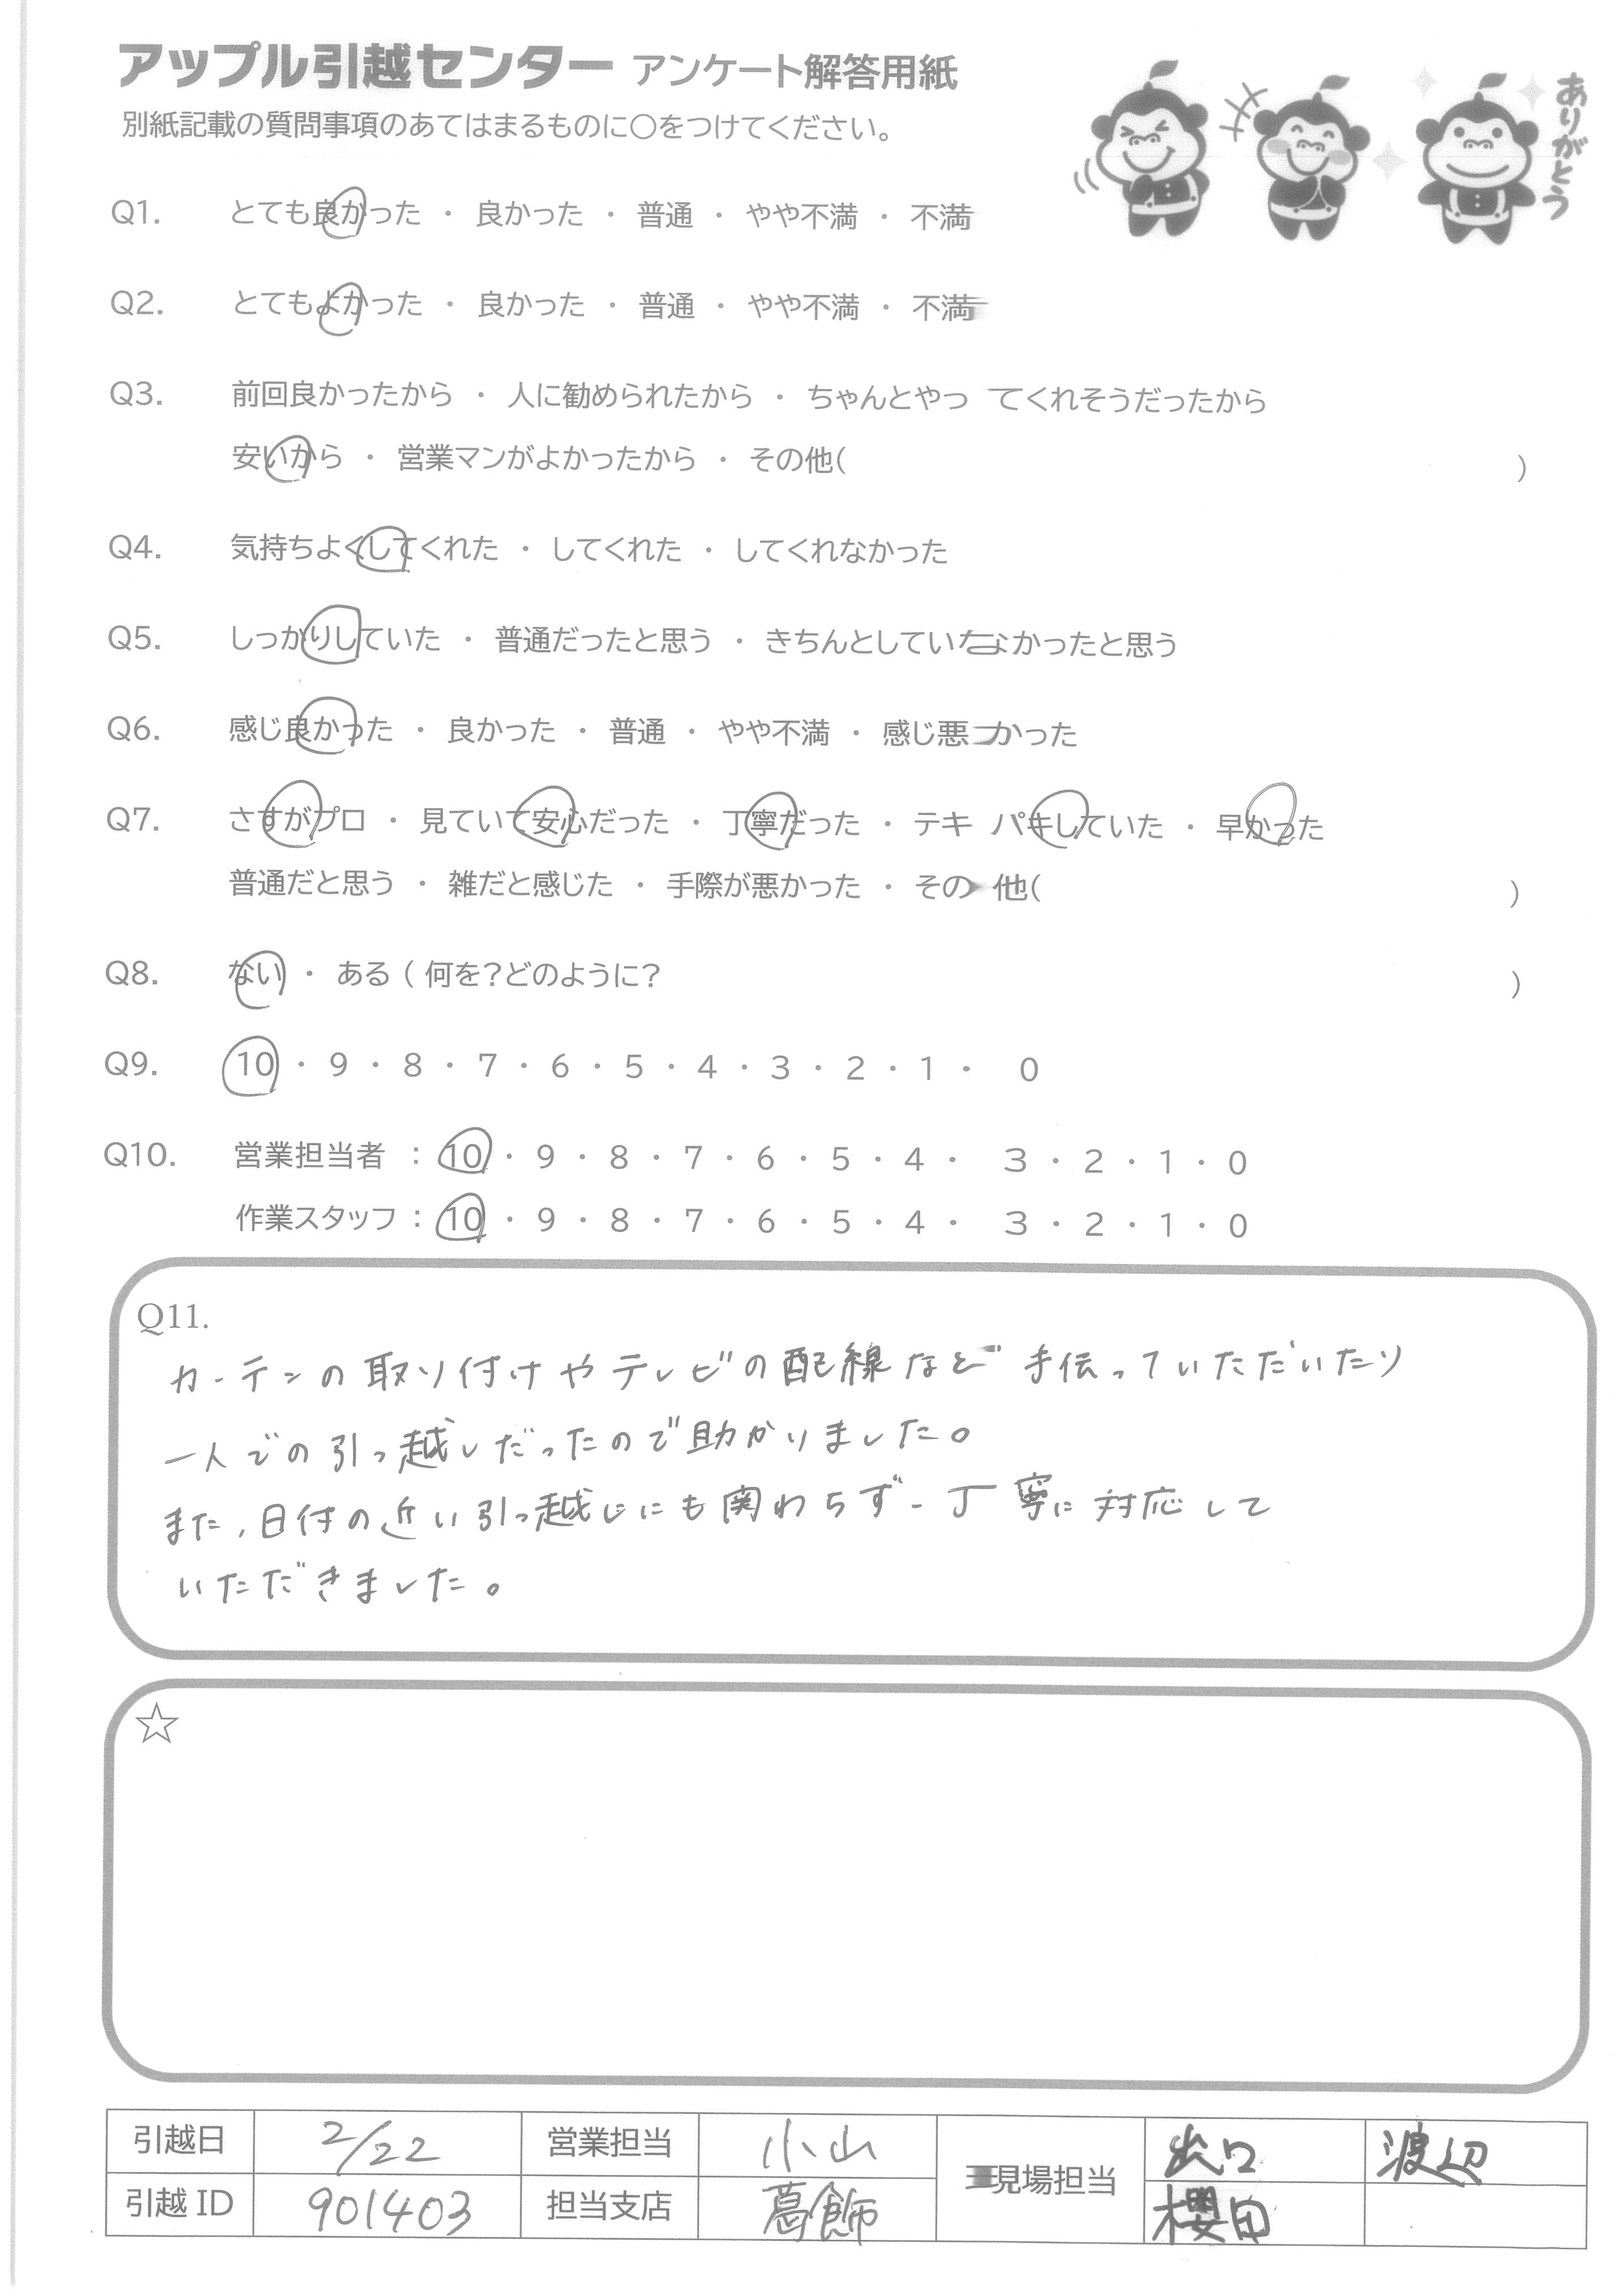 アップル引越センター アンケート解答用紙
別紙記載の質問事項のあてはまるものに○をつけてください。
ありがとう
Q1. とても良かった ・ 良かった ・ 普通 ・ やや不満 ・ 不満
Q2. とてもよかった ・ 良かった ・ 普通 ・ やや不満 ・ 不満
Q3. 前回良かったから ・ 人に勧められたから ・ ちゃんとやってくれそうだったから
安いから ・ 営業マンがよかったから ・ その他( )
Q4. 気持ちよくしてくれた ・ してくれた ・ してくれなかった
Q5. しっかりしていた ・ 普通だったと思う ・ きちんとしていなかったと思う
Q6. 感じ良かった ・ 良かった ・ 普通 ・ やや不満 ・ 感じ悪かった
Q7. さすがプロ ・ 見ていて安心だった ・ 丁寧だった ・ テキパキしていた ・ 早かった
普通だと思う ・ 雑だと感じた ・ 手際が悪かった ・ その他( )
Q8. ない ・ ある ( 何を?どのように? )
Q9. 10 ・ 9 ・ 8 ・ 7 ・ 6 ・ 5 ・ 4 ・ 3 ・ 2 ・ 1 ・ 0
Q10. 営業担当者 : 10 ・ 9 ・ 8 ・ 7 ・ 6 ・ 5 ・ 4 ・ 3 ・ 2 ・ 1 ・ 0
作業スタッフ : 10 ・ 9 ・ 8 ・ 7 ・ 6 ・ 5 ・ 4 ・ 3 ・ 2 ・ 1 ・ 0
Q11.
カーテンの取り付けやテレビの配線など手伝っていただいたり
一人での引っ越しだったので助かりました。
また、日付の近い引っ越しにも関わらず、丁寧に対応して
いただきました。
☆
引越日 2/22 営業担当 小山 現場担当 出口 渡辺
引越ID 901403 担当支店 葛飾 櫻田